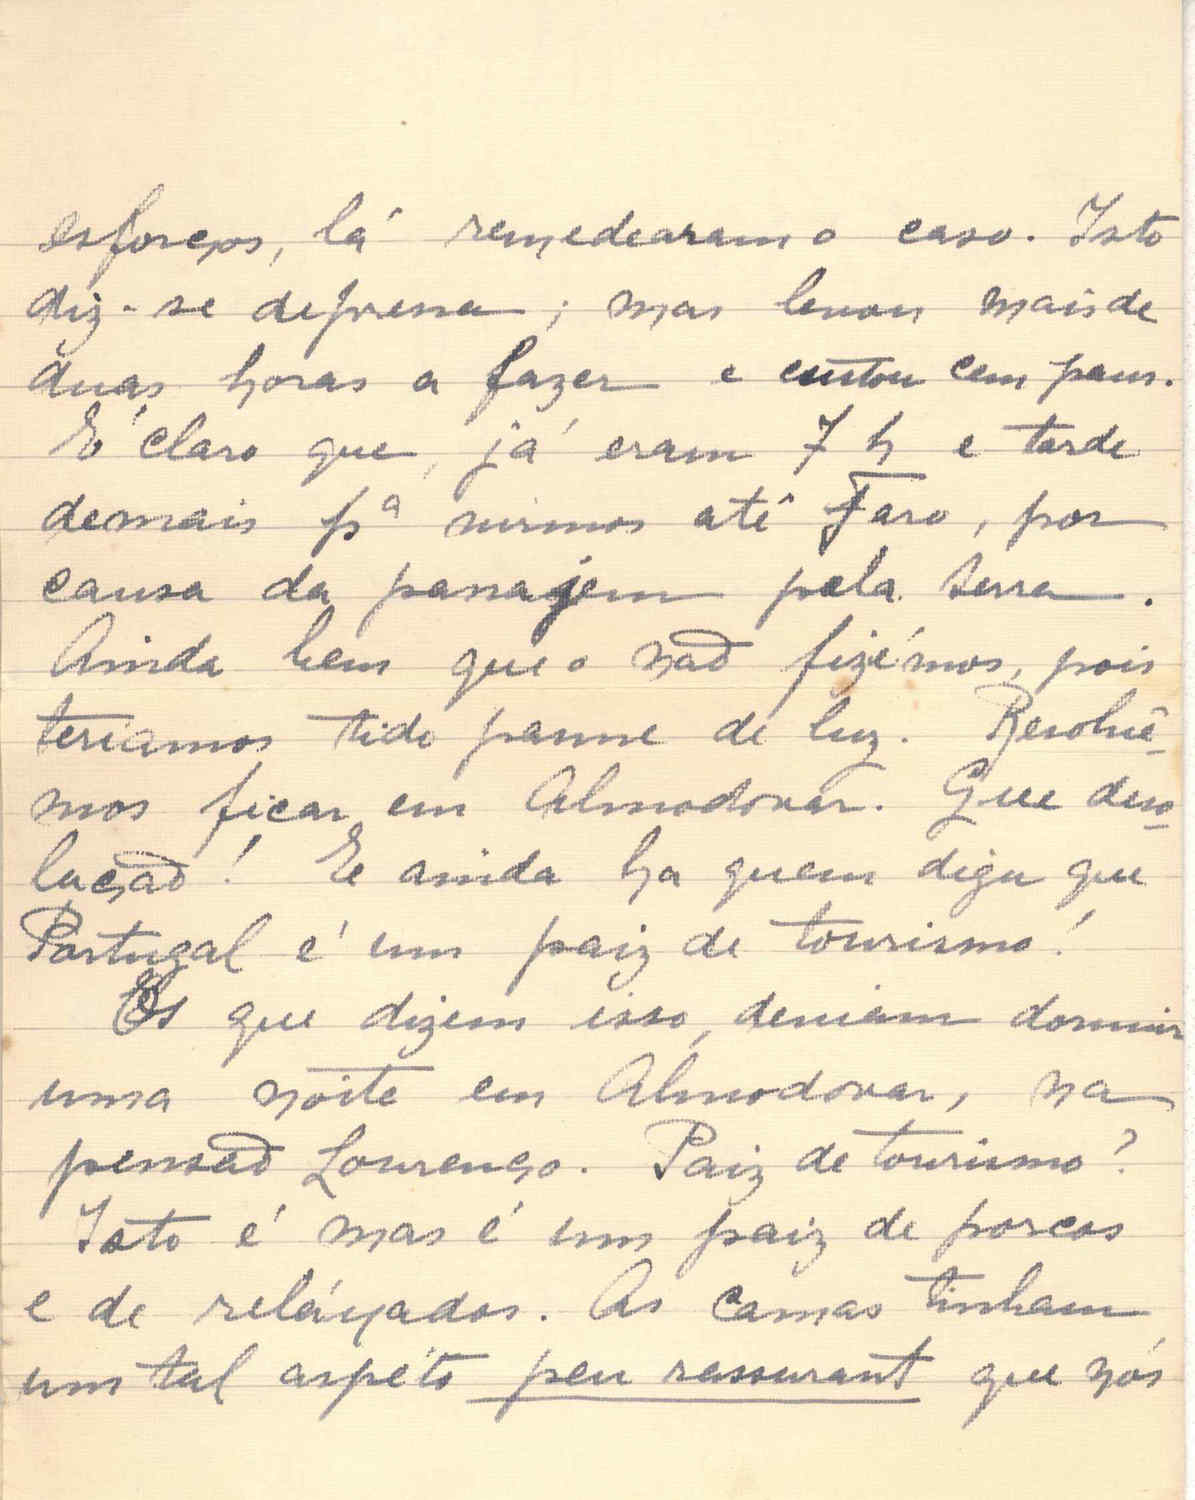 esforços, lá remedearam o caso. Isto
diz-se depressa; mas levou mais de
duas horas a fazer e custou cem paus.
É claro que, já eram 7 h e tarde
demais pª virmos até Faro, por
causa da passajem pela serra.
Ainda bem que o não fizémos, pois
teriamos tido panne de luz. Resolvê-
mos ficar em Almodovar. Que deso-
lação! E ainda ha quem diga que
Portugal é um paiz de tourismo!
Os que dizem isso, deviam dormir
uma noite em Almodovar, na
pensão Lourenço. Paiz de tourismo?
Isto é mas é um paiz de porcos
e de reláxados. As camas tinham
um tal aspéto peu rassurant que nós